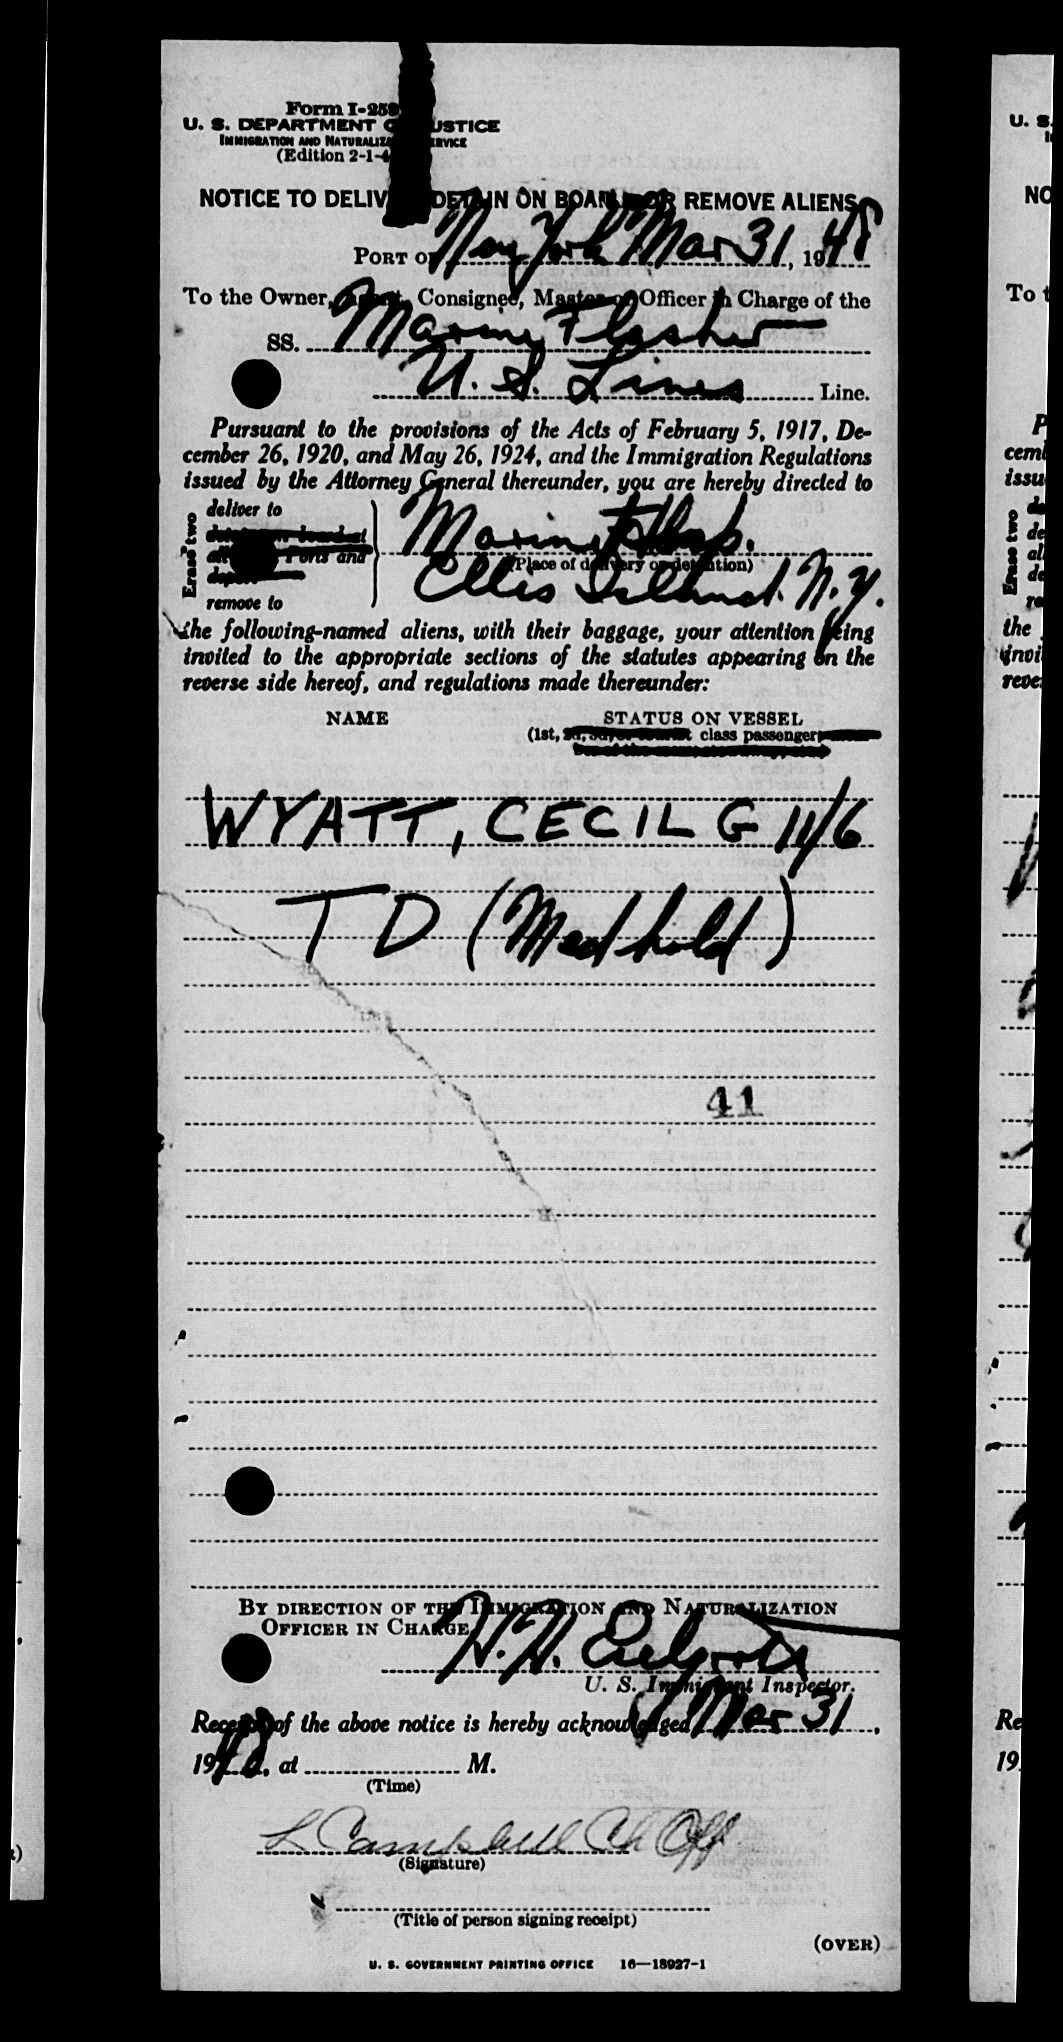 Form I-259
U. S. DEPARTMENT OF JUSTICE
IMMIGRATION AND NATURALIZATION SERVICE
(Edition 2-1-4
NOTICE TO DELIVER, DETAIN ON BOARD, OR REMOVE ALIENS
PORT OF New York Mar 31, 1948
To the Owner, Agent, Consignee, Master or Officer in Charge of the
SS. Marine Flasher
U. S. Lines Line.
Pursuant to the provisions of the Acts of February 5, 1917, De-
cember 26, 1920, and May 26, 1924, and the Immigration Regulations
issued by the Attorney General thereunder, you are hereby directed to
Erase two
deliver to
Ports and
remove to
Marine Hosp.
(Place of delivery or detention)
Ellis Island. N.Y.
the following-named aliens, with their baggage, your attention being
invited to the appropriate sections of the statutes appearing on the
reverse side hereof, and regulations made thereunder:
NAME STATUS ON VESSEL
(1st, class passenger
WYATT, CECIL G 11/6
TD (Med hold)
41
BY DIRECTION OF THE IMMIGRATION AND NATURALIZATION
OFFICER IN CHARGE
H. H.
U. S. Immigrant Inspector.
Receipt of the above notice is hereby acknowledged Mar 31,
1948, at M.
(Time)
L Campbell Ch Off
(Signature)
(Title of person signing receipt)
(OVER)
U. S. GOVERNMENT PRINTING OFFICE 16—18927-1